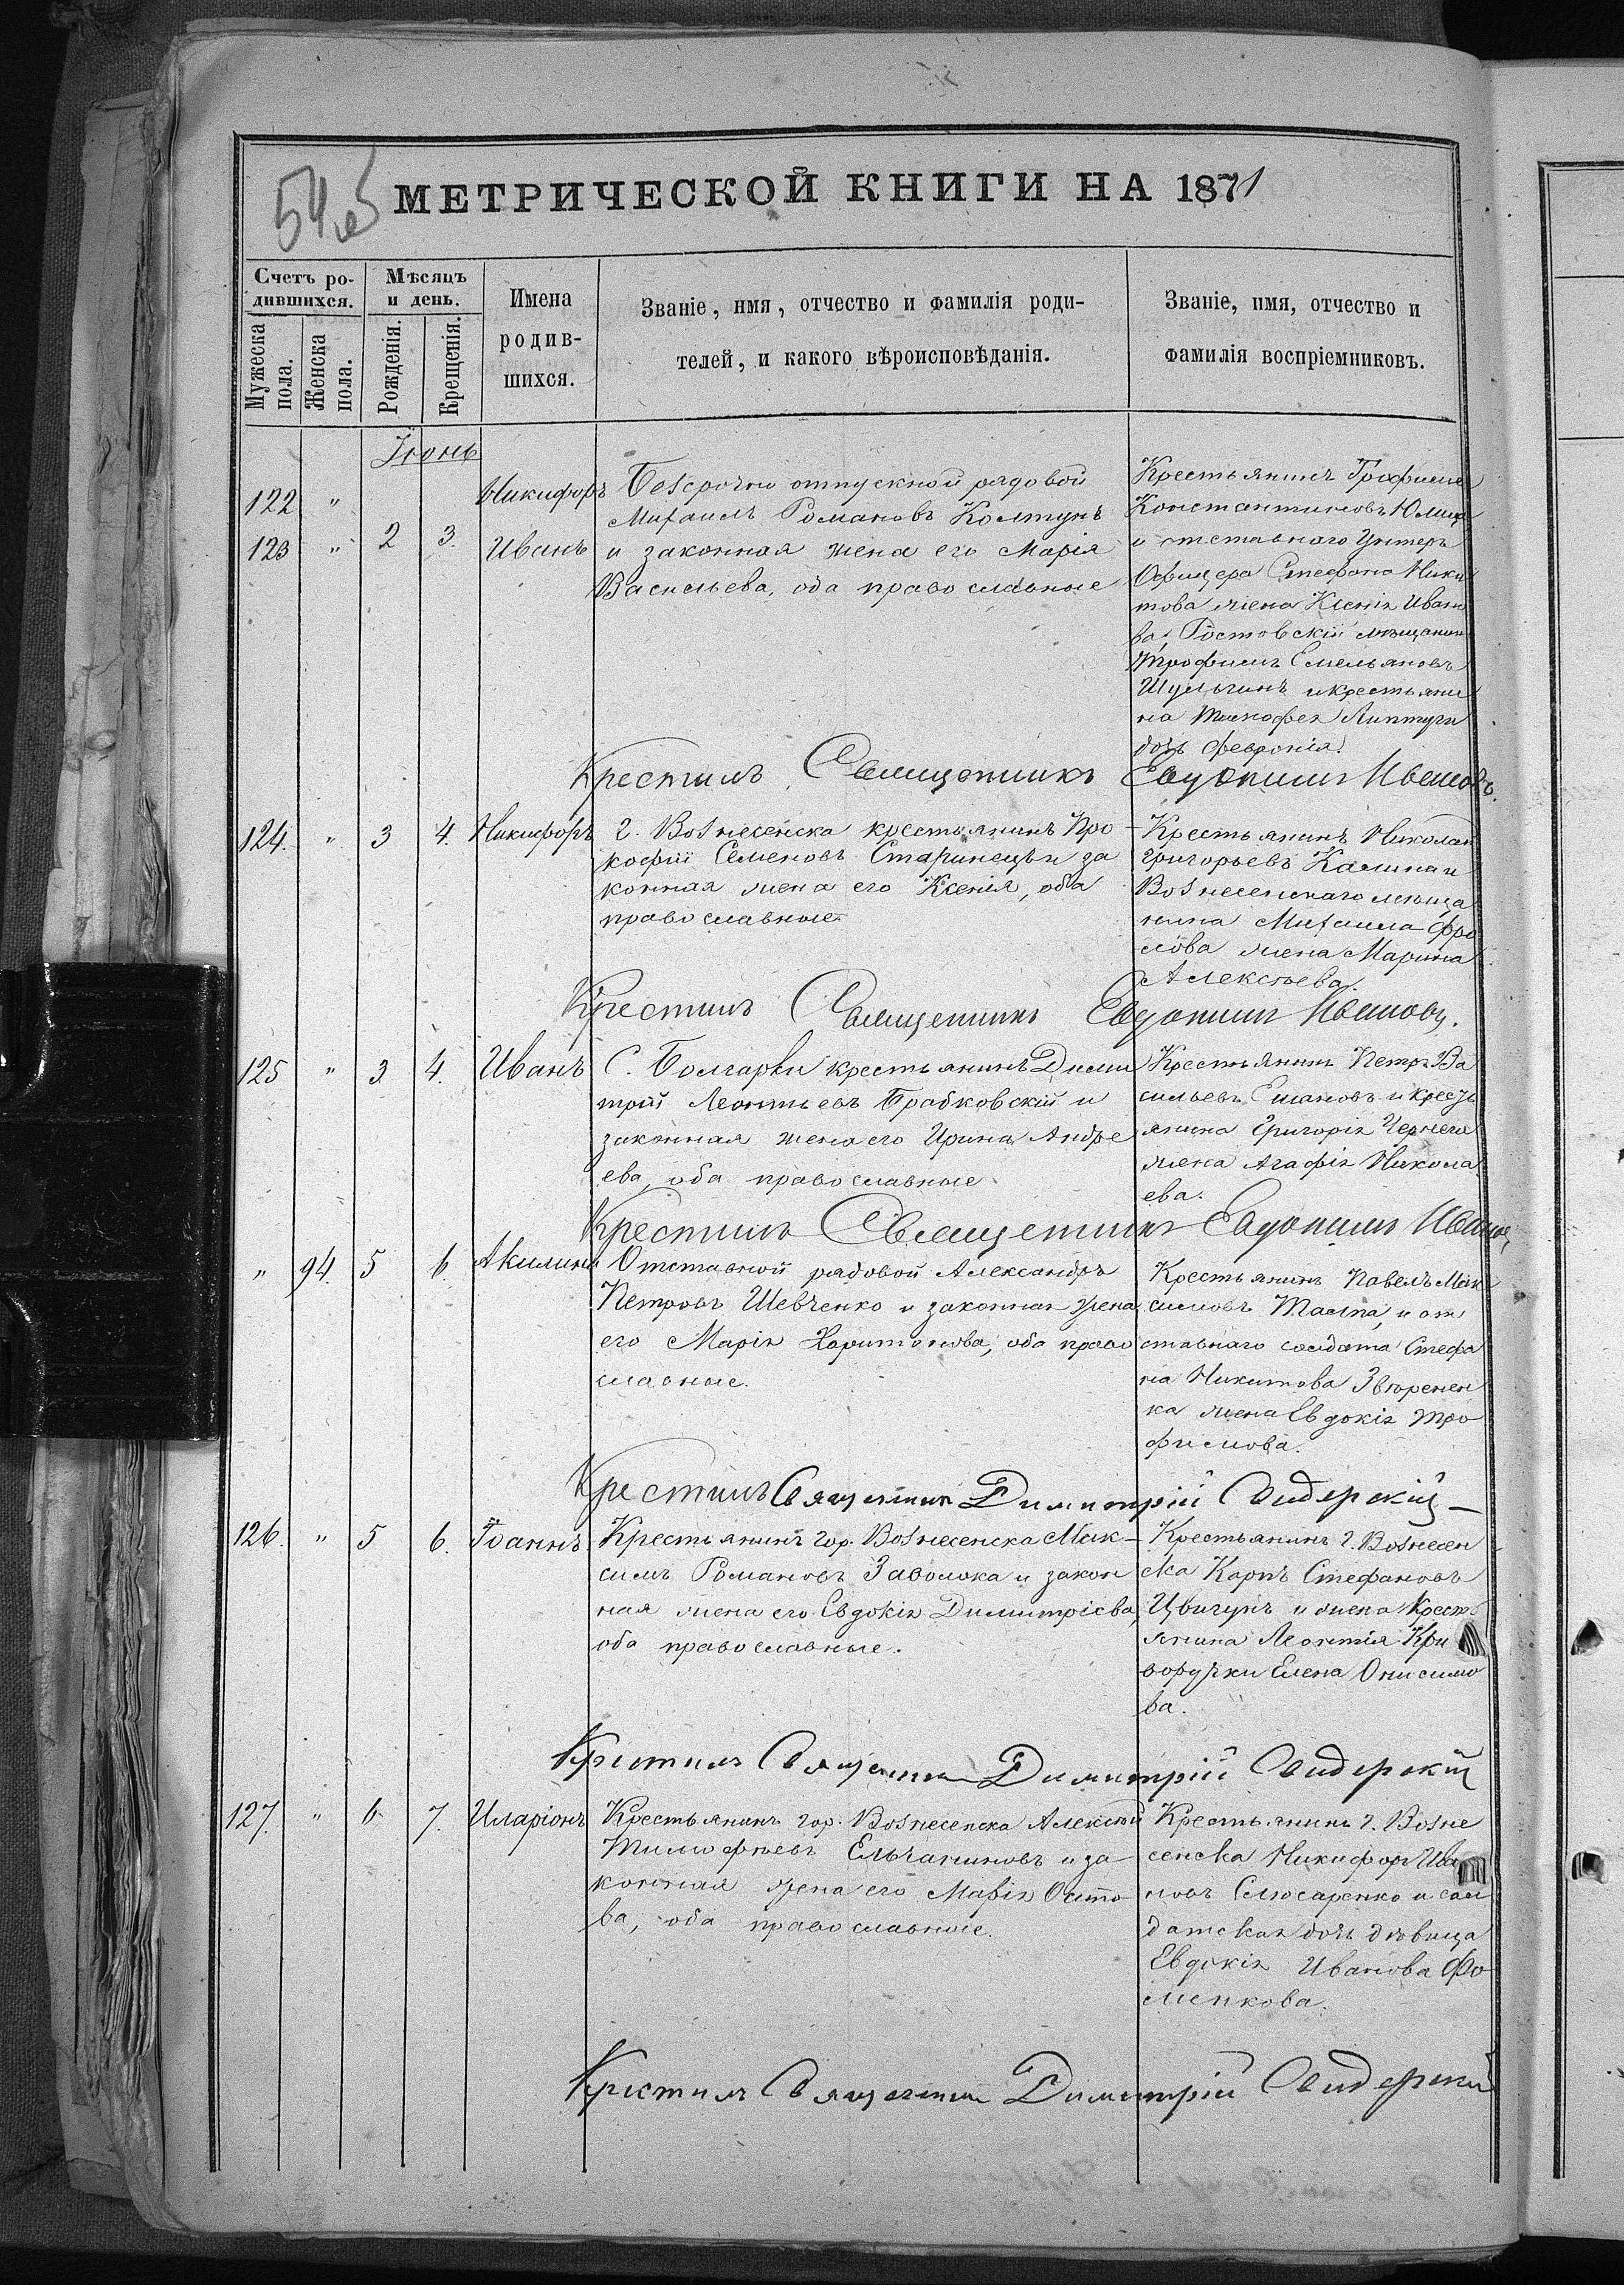 54 об
МЕТРИЧЕСКОЙ КНИГИ НА 1871
Счетъ ро-
дившихся.
Мѣсяцъ
и день.
Имена
родив-
шихся.
Званіе, имя, отчество и фамилія роди-
телей, и какого вѣроисповѣданія.
Званіе, имя, отчество и
фамилія воспріемниковъ.
Мужеска
пола.
Женска
пола.
Рожденія.
Крещенія.
Іюнь
122 "
Никифоръ
123 " 2 3.
Иванъ
Безсрочно отпускной рядовой
Михаилъ Романовъ Колтунъ
и законная жена его Марія
Васильева, оба православные
Крестьянинъ Трофимъ
Константиновъ
и отставнаго Унтеръ
Офицера Стефана Ники
това жена Ксенія Ивано
ва, Ростовскій мещанинъ
Трофимъ Емельяновъ
Шульгинъ и крестьяни
на Тимофея
дочь Февронія.
Крестилъ Священникъ Евдокимъ Ивановъ.
124. " 3 4. Никифоръ
г. Вознесенска крестьянинъ Про
кофій Семеновъ Старинецъ и за
конная жена его Ксенія, оба
православные
Крестьянинъ Николай
Григорьевъ Калина и
Вознесенскаго меща
нина Михаила Фро
лова жена Марина
Алексеева.
Крестилъ Священникъ Евдокимъ Ивановъ.
125 " 3 4. Иванъ
С. Болгарки крестьянинъ Дими
трій Леонтьевъ Бравковскій и
законная жена его Ирина Андре
ева, оба православные
Крестьянинъ Петръ Ва
сильевъ и кресть
янина Григорія
жена Агафія Никола
ева.
Крестилъ Священникъ Евдокимъ Ивановъ
" 94. 5 6 Акилина
Отставной рядовой Александръ
Петровъ Шевченко и законная жена
его Марія Харитонова, оба право
славные.
Крестьянинъ Павелъ Мак
симовъ Талпа, и от
ставнаго солдата Стефа
на Никитова Звѣренен
ка жена Евдокія Тро
фимова.
Крестилъ Священникъ Димитрій Свидерскій
126. " 5 6. Іоаннъ
Крестьянинъ гор. Вознесенска Мак-
симъ Романовъ Заволока и закон
ная жена его Евдокія Димитріева,
оба православные.
Крестьянинъ г. Вознесен
ска Карпъ Стефановъ
Цвигунъ и жена Кресть
янина Леонтія Кри
воручки Елена Онисимо
ва.
Крестилъ Священникъ Димитрій Свидерскій
127. " 6 7. Иларіонъ
Крестьянинъ гор. Вознесенска Алексѣй
Тимофѣевъ Ельчаниновъ и за
конная жена его Марія
ва, оба православные.
Крестьянинъ г. Возне
сенска Никифоръ Ива
новъ Слюсаренко и сол
датская дочь дѣвица
Евдокія Иванова Фо
менкова.
Крестилъ Священникъ Димитрій Свидерскій